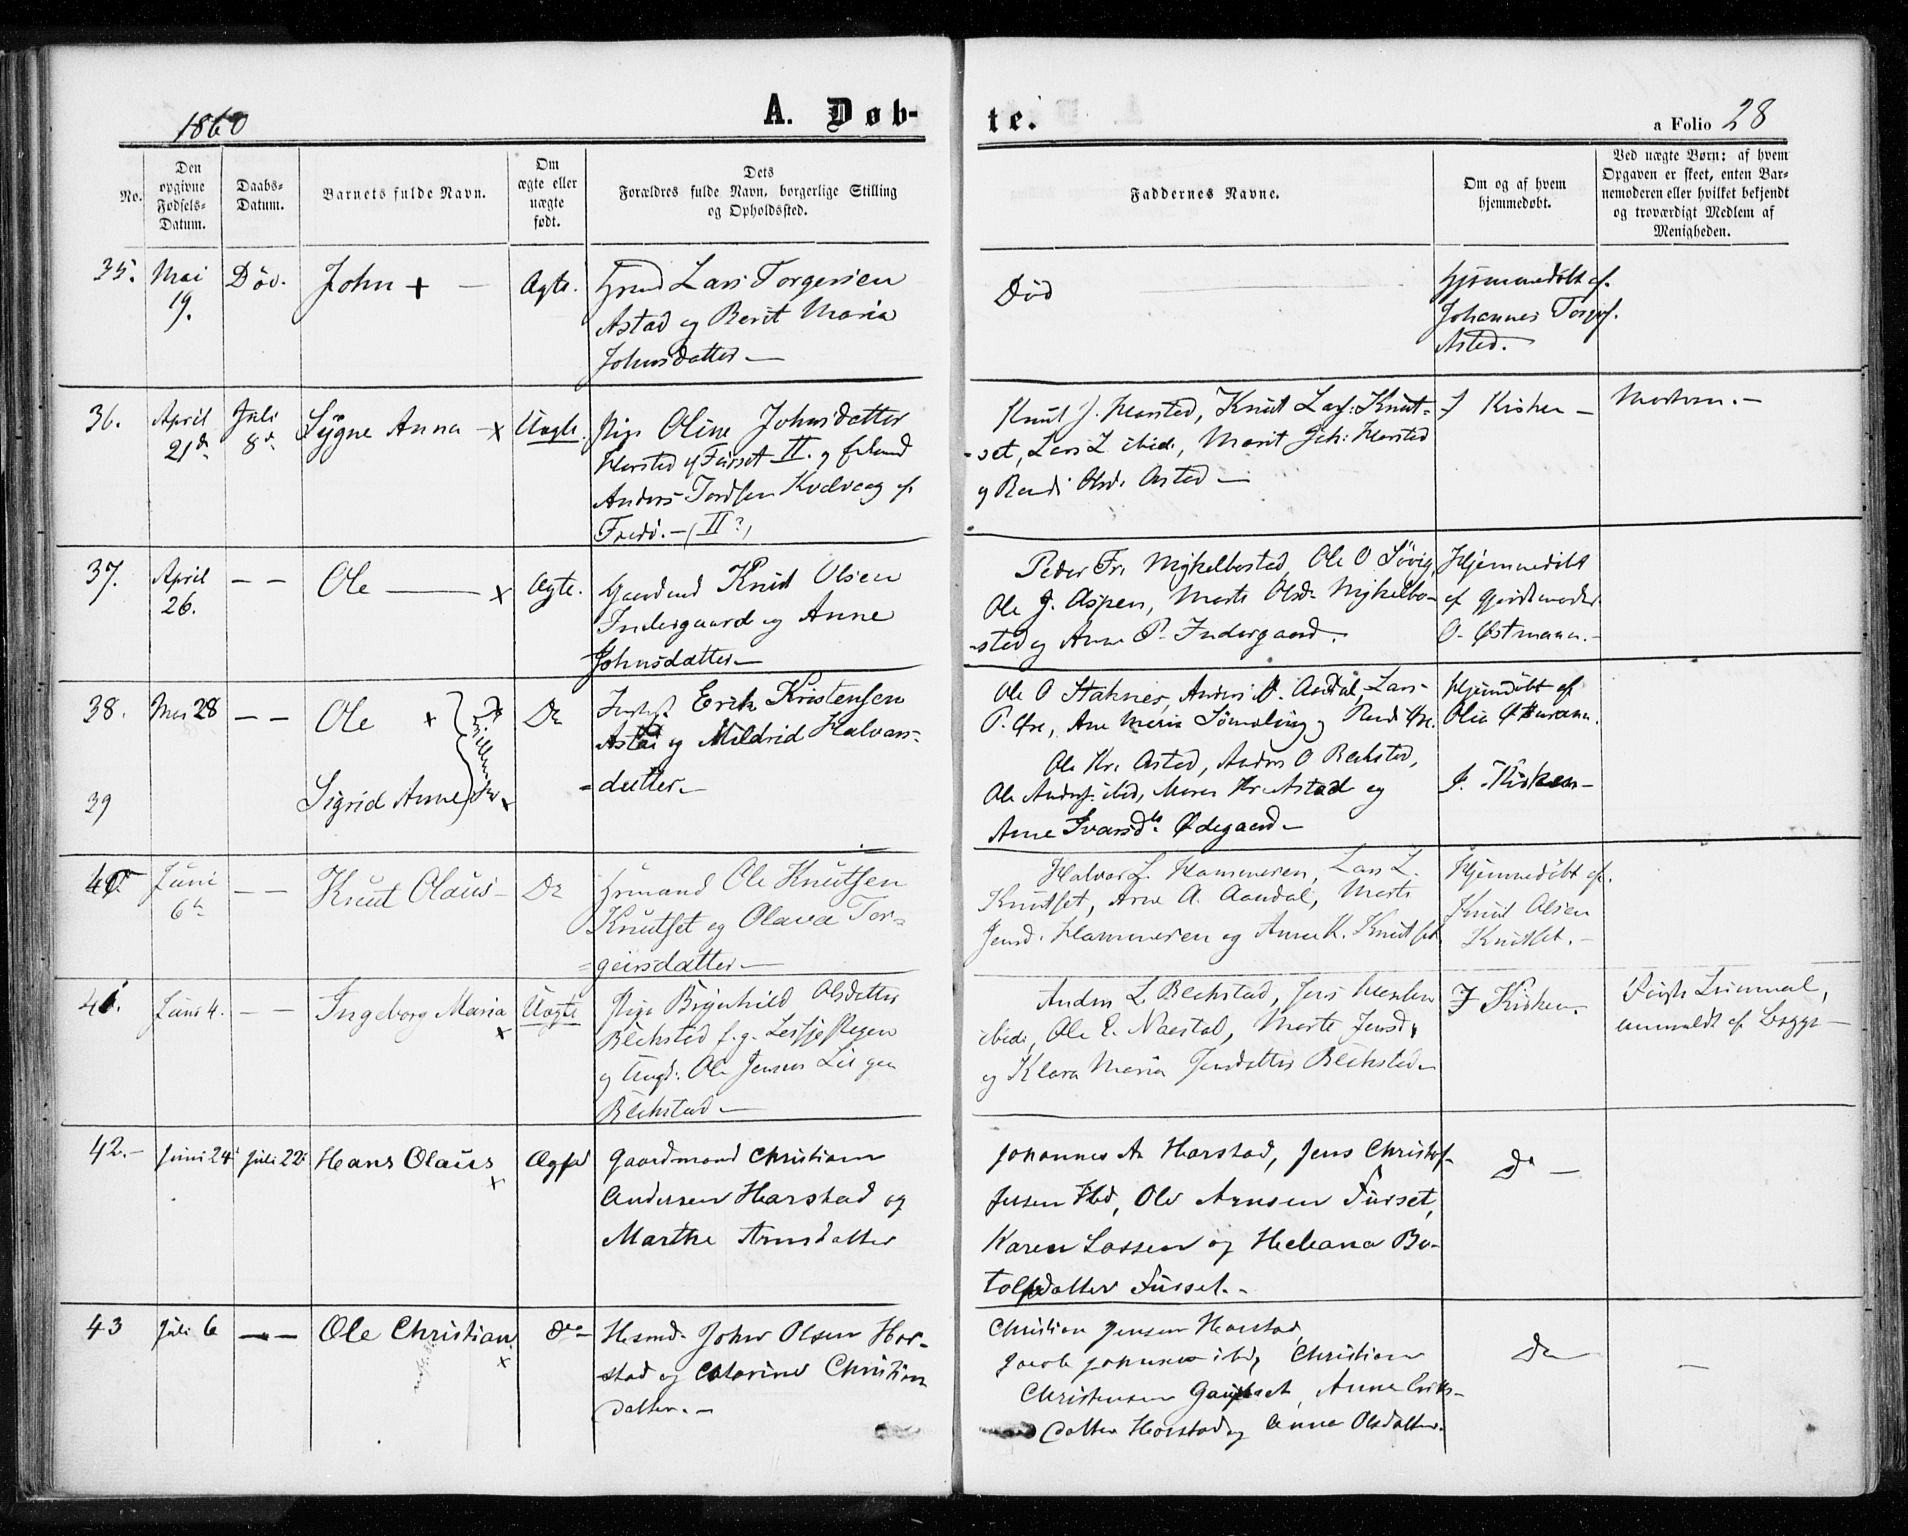 1860
A. Døb-
te.
a Folio 28
No.
Den
opgivne
Fødsels-
Datum.
Daabs-
Datum.
Barnets fulde Navn.
Om
ægte eller
uægte
født.
Dets
Forældres fulde Navn, borgerlige Stilling
og Opholdssted.
Faddernes Navne.
Om og af hvem
hjemmedøbt.
Ved uægte Børn: af hvem
Opgaven er skeet, enten Bar-
nemoderen eller hvilket bekjendt
og troværdigt Medlem af
Menigheden.
35.
Mai
19.
John +
Ægte.
Lars Torgersen
Astad og Berit Maria
Johnsdatter
Død
Hjemmedøbt af
Johannes
Asted.
36.
April
21de
Juli
8de
Sygne Anna x
Uægte.
Pige Oline Johnsdatter
Harsted af Furset II. og
Anders Kvelvaag af
Fredø. (II?)
Knut J. Harsted, Knut Lars: Knut-
set, Lars L ibid., Marit Joh: Harsted
og Randi Olsd. Asted
I Kirken
Moderen.
37.
April
26.
— —
Ole x
Ægte.
Gaardmd Knud Olsen
Indergaard og Anne
Johnsdatter
Peder Fr. Myhelbostad, Ole O.
Ole J. Aspen, Marit Olsd. Myhelbo-
sted og Anne P. Indergaard.
Hjemmedøbt
af Gjordemoder
O. Østmann.
38.
Mai 28
— —
Ole +
Do
Erik Kristensen
Astad og Mildrid Halvars-
datter
Ole O Staknes, Anders O. Aandal, Lars
P. Øre, Ane Maria og Randi Øre.
Hjemdøbt af
Olia Østmann.
39
Sigrid Anne x
Tvillinger
Ole Kr. Asted, Anders O Blekstad,
Ole Anders. ibid, Maren Kr. Astad og
Anne Ivarsdtr. Ødegaard
I. Kirken
40.
Juni
6te
— —
Knut Olaus
Do
Husmand Ole Knutsen
Knutset og Olava Tor-
geirsdatter
Halvor L. Hammeren, Lars L.
Knutset, Arne A. Aandal, Marit
Jensd. Hammeren og Anne K. Knutset
Hjemmedøbt af
Knud Olsen
Knutset.
41.
Juni 4.
— —
Ingeborg Maria x
Uægte
Pige Brynhild Olsdatter
Blekstad
og Ungk. Ole Jensen
Blekstad
Anders L. Blekstad, Jens
ibid, Ole E. Naastad, Marit Jensd.
og Klara Maria Jensdatter Blekstad
I Kirken.
anmeldt af
42.
Juni 24
Juli 22
Hans Olaus x
Ægte
Gaardmand Christian
Andersen Harstad og
Marthe Arnsdatter
Johannes A. Harstad, Jens Christof-
fersen Ibid, Ole Arnsen Furset,
Karen Lassen og Heleana Bo-
tolfsdatter Furset.
Do
43
Juli 6
— —
Ole Christian x
do
Husmd. John Olsen Har-
stad og Catarine Christian
datter.
Christian Jensen Harstad,
Jacob Johannes ibid, Christian
Christensen Gaupset, Anne Eriks-
datter Harstad og Anne Olsdatter.
Do
—